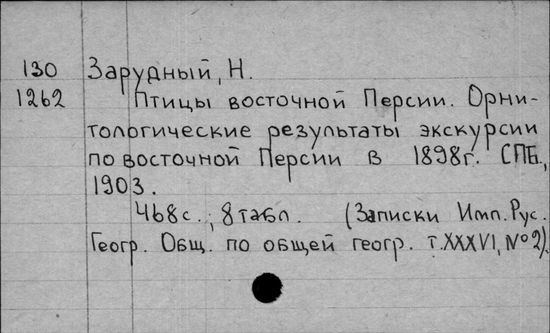 130 Зарудный, Н.
1262 Птицы восточной Персии. Орни-
тологические результаты экскурсии
по восточной Персии в 1898г. СПБ.,
1903.
468с., 8 табл. (Записки Имп. Рус.
Геогр. Общ. по общей геогр. т. XXXVI, №2).